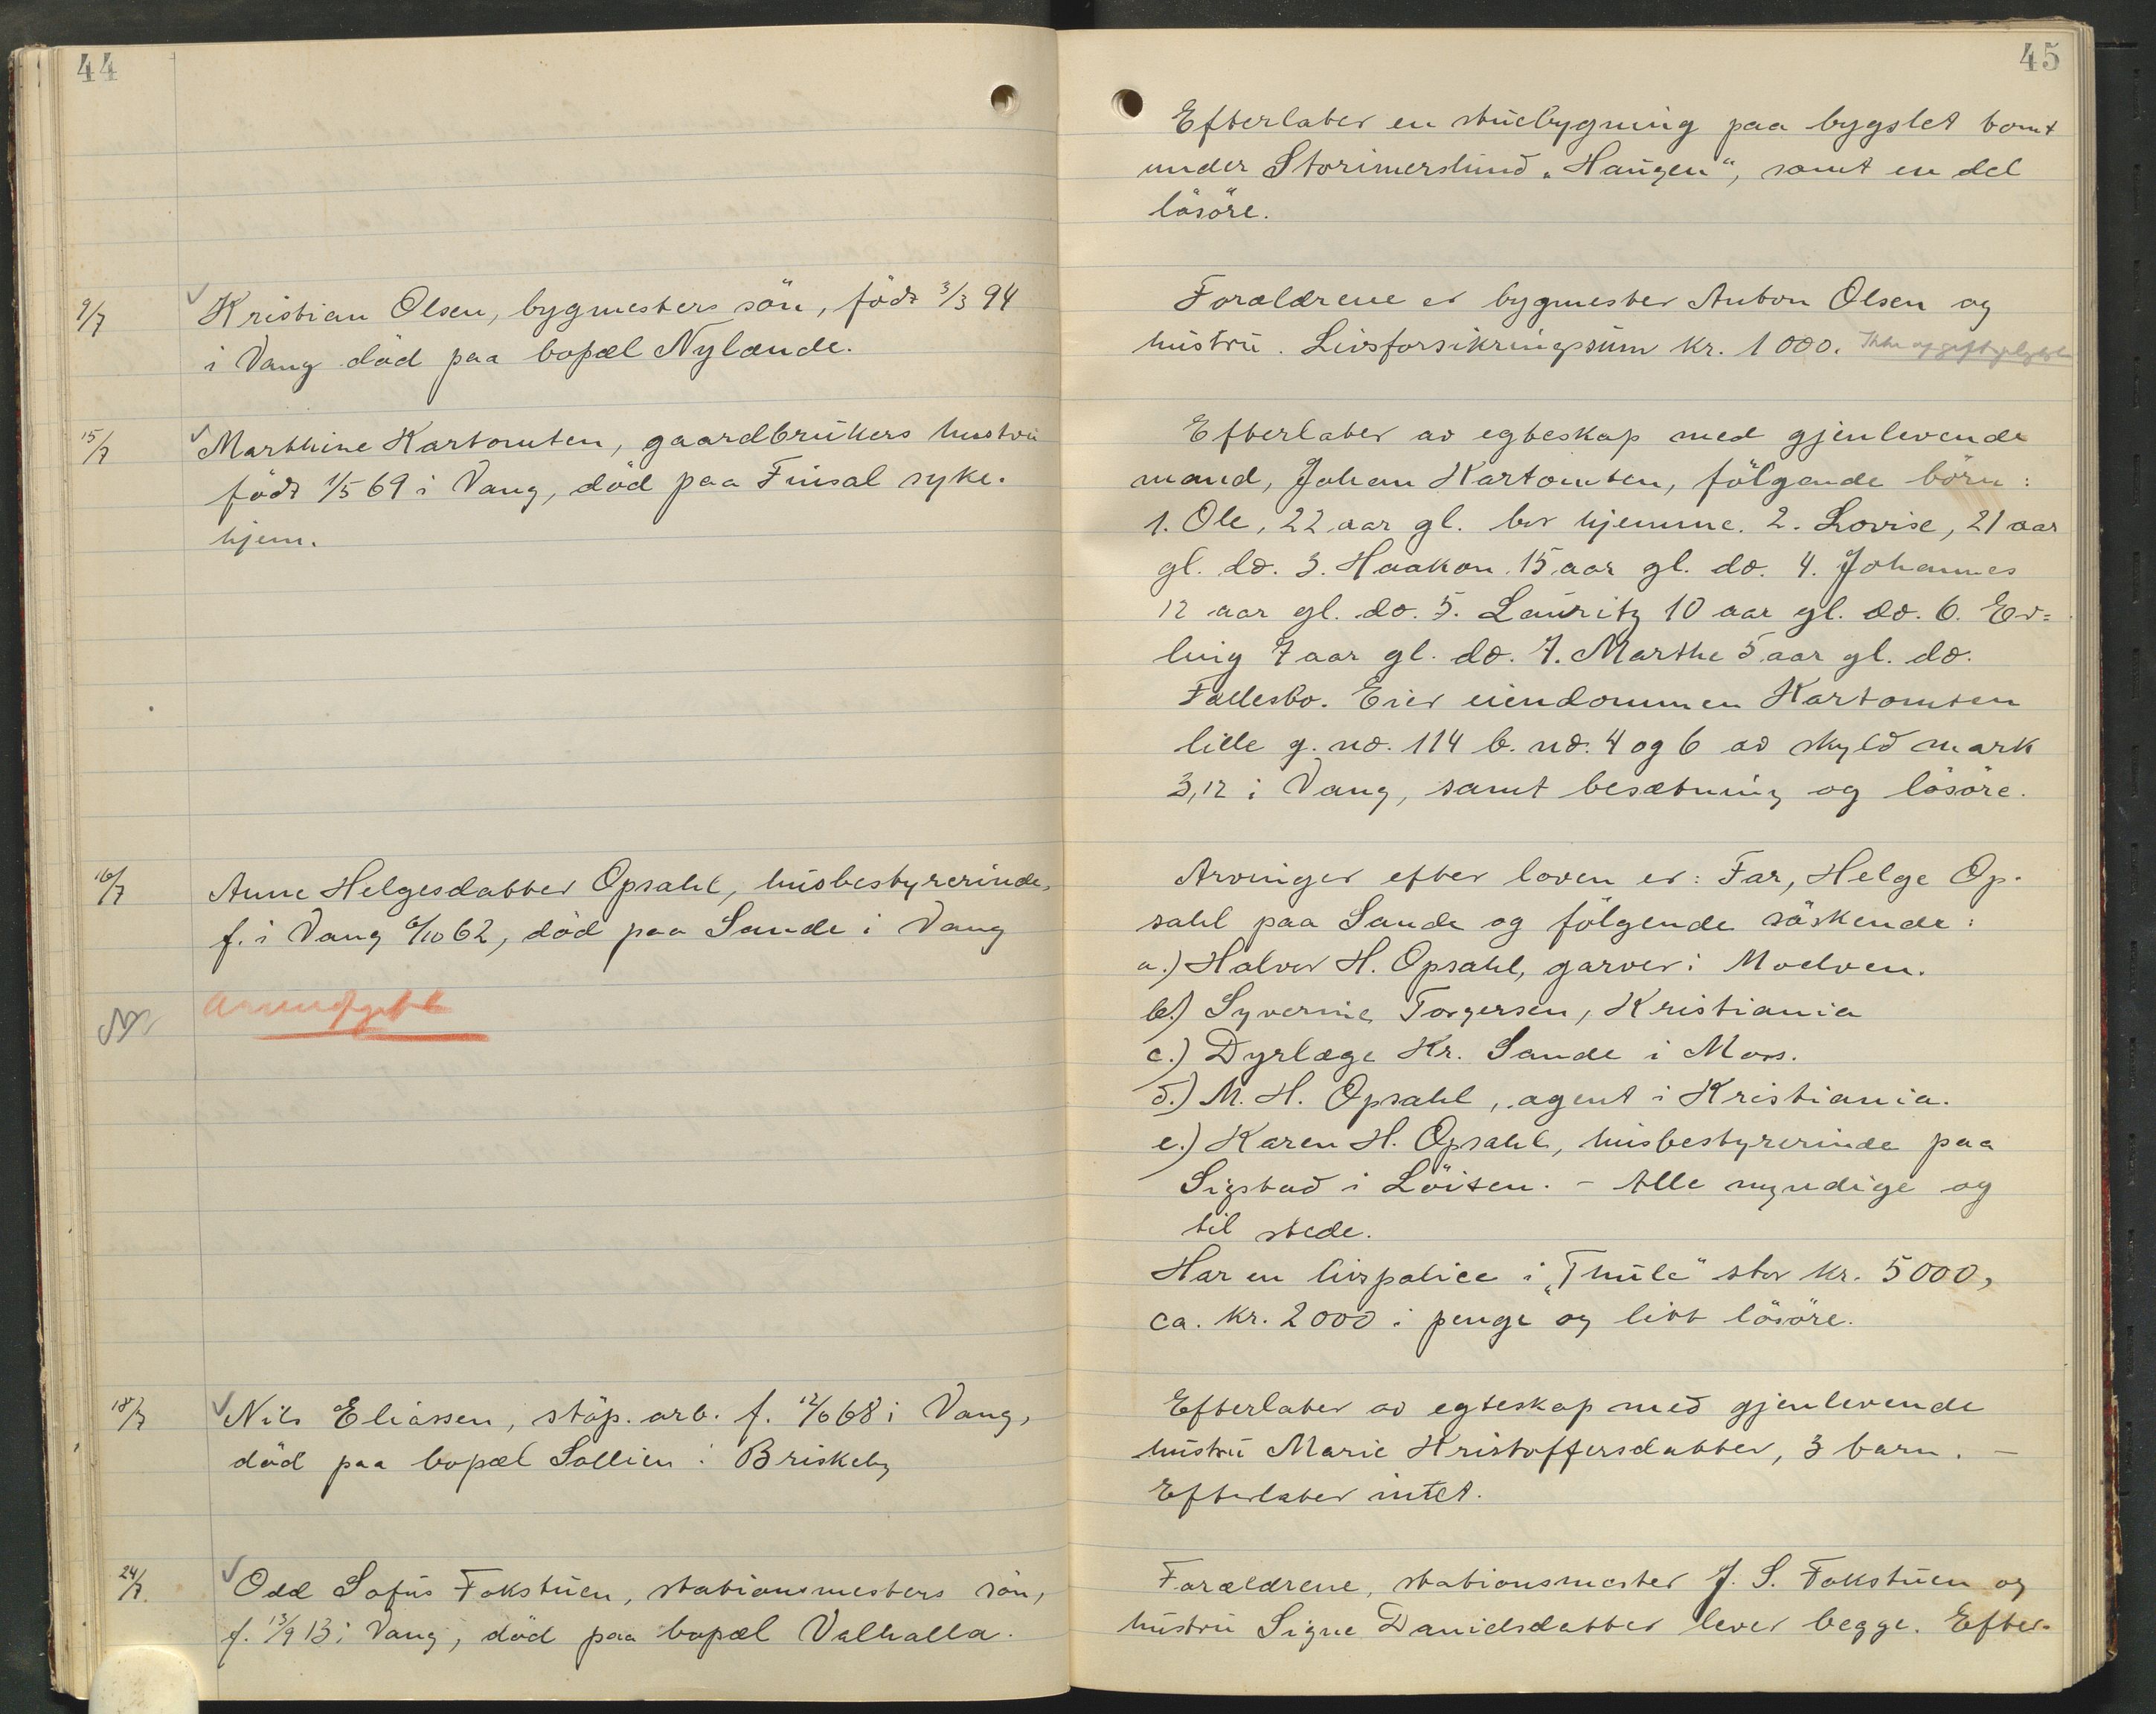 44
9/7 Kristian Olsen, bygmesters sön, födt 3/3 94
i Vang död paa bopæl Nylænde.
15/7 Marthine Kartomten, gaardbrukers hustru
födt 1/5 69 i Vang, död paa Finsal syke-
hjem.
16/7 Anne Helgesdatter Opsahl, husbestyrerinde,
f. i Vang 6/10 62, död paa Sande i Vang
18/7 Nils Eliassen, stöp. arb. f. 12/6 68 i Vang,
död paa bopæl Sollien i Briskeby
24/7. Odd Sofus Fokstuen, stationsmesters sön,
f. 13/9 13 i Vang, död paa bopæl Valhalla.
45
Efterlater en stuebygning paa bygslet tomt
under Storimerslund „Haugen“, samt en del
lösöre.
Forældrene er bygmester Anton Olsen og
hustru. Livsforsikringssum kr. 1000. Ikke
Efterlater av egteskap med gjenlevende
mand, Johan Kartomten, fölgende börn:
1. Ole, 22 aar gl. bor hjemme. 2. Lovise, 21 aar
gl. do. 3. Haakon 15 aar gl. do. 4. Johannes
12 aar gl. do. 5. Lauritz 10 aar gl. do. 6. Er=
ling 7 aar gl. do. 7. Marthe 5 aar gl. do.
Fællesbo. Eier eiendommen Kartomten
lille g. no. 114 b. no. 4 og 6 av skyld mark
3,12 i Vang, samt besætning og lösöre.
Arvinger efter loven er: Far, Helge Op-
sahl paa Sande og fölgende söskende:
a.) Halvor H. Opsahl, garver i Moelven.
b.) Syverine Torgersen, Kristiania
c.) Dyrlæge Kr. Sande i Moss.
d.) M. H. Opsahl, agent i Kristiania.
e.) Karen H. Opsahl, husbestyrerinde paa
Sigstad i Löiten. - Alle myndige og
til stede.
Har en livspolice i „Thule“ stor kr. 5000,
ca. kr. 2000 i penge og litt lösöre.
Efterlater av egteskap med gjenlevende
hustru Marie Kristoffersdatter, 3 barn. -
Efterlater intet.
Forældrene, stationsmester J. S. Fokstuen og
hustru Signe Danielsdatter lever begge. Efter-